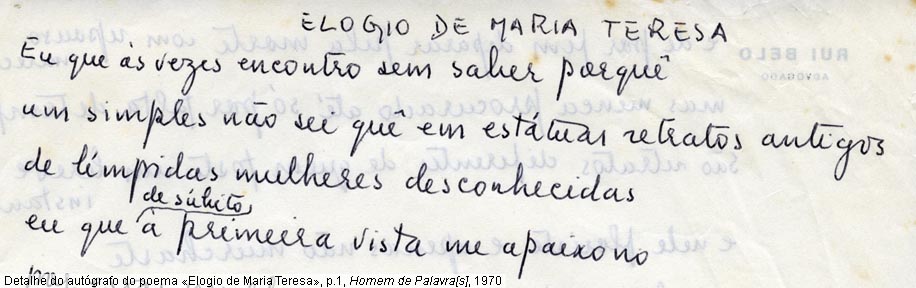 ELOGIO DE MARIA TERESA
RUI BELO
ADVOGADO
Eu que às vezes encontro sem saber porquê
um simples não sei quê em estátuas retratos antigos
de límpidas mulheres desconhecidas
de súbito
eu que à primeira vista me apaixono
Detalhe do autógrafo do poema «Elogio de Maria Teresa», p.1, Homem de Palavra[s], 1970